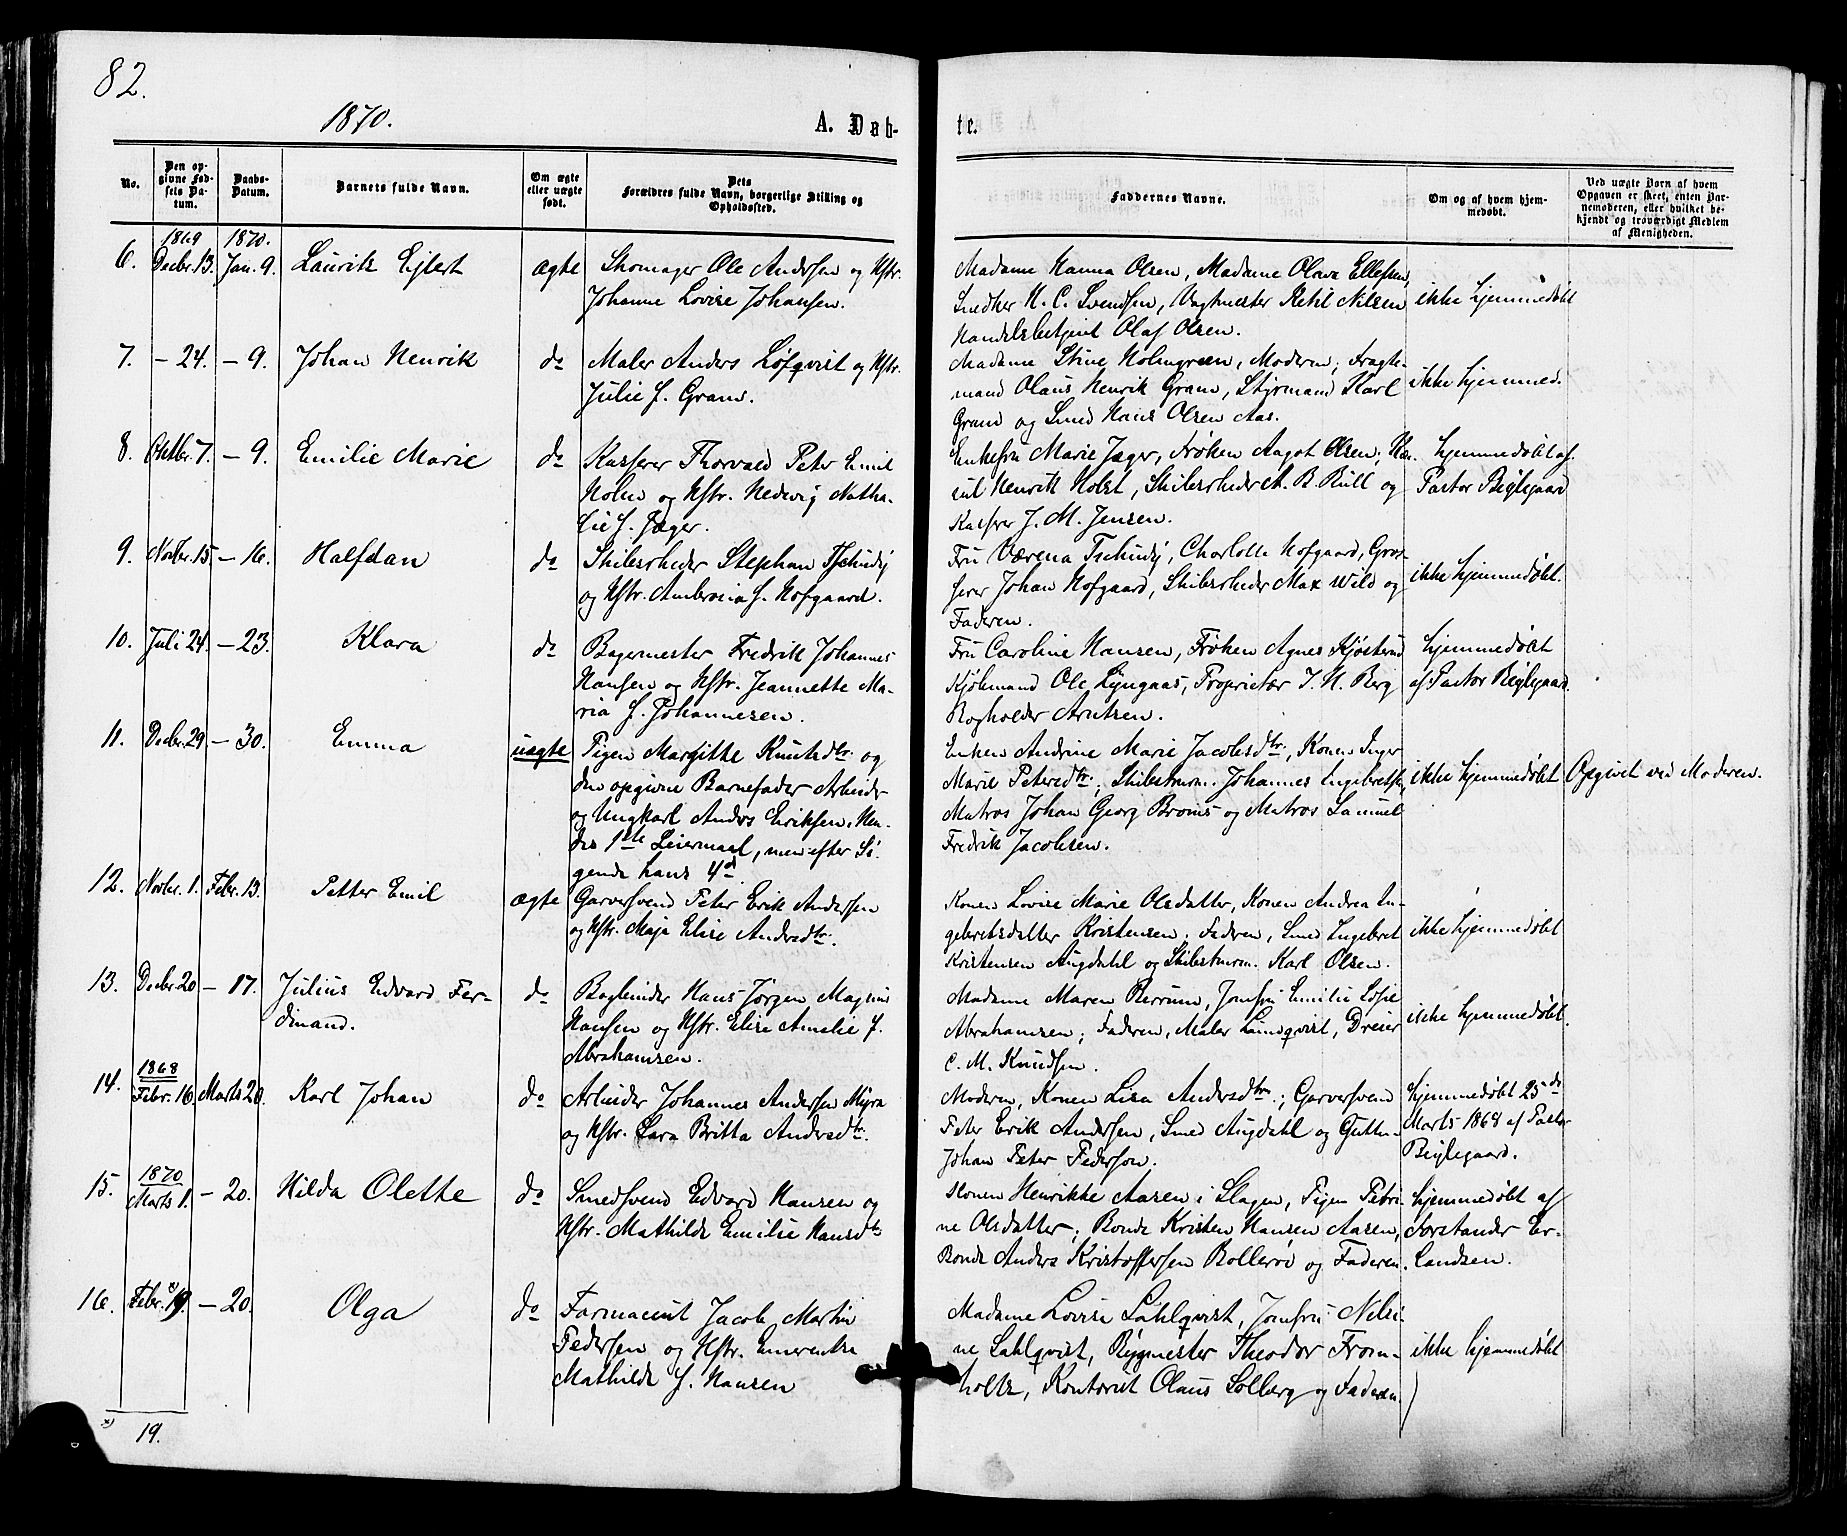 82.
1870.
A. Døb-
te.
No.
Den op-
givne Fød-
sels Da-
tum.
Daabs-
Datum.
Barnets fulde Navn.
Om ægte
eller uægte
født.
Dets
Forældres fulde Navn, borgerlige Stilling og
Opholdssted.
Faddernes Navne.
Om og af hvem hjem-
medøbt.
Ved uægte Barn af hvem
Opgaven er skeet, enten Bar-
nemoderen, eller hvilket be-
kjendt og troværdigt Medlem
af Menigheden.
1869 1870.
6. Decbr. 13. Jan. 9. Laurik Ejlert ægte Skomager Ole Andersen og Hstr.
Johanne Lovise Johansen.
Madame Hanna Olsen, Madame Olava Ellefsen,
Snedker H. C. Svendsen, Vagtmester Ketil Nilsen
Handelsbetjent Olaf Olsen.
ikke hjemmedøbt
7. — 24. — 9. Johan Henrik do Maler Anders Løfqvist og Hstr.
Julie f. Gram.
Madame Stine Holmgreen, Moderen; Fragte-
mand Olaus Henrik Gram, Styrmand Karl
Gram og Smed Hans Olsen Aas.
ikke hjemmed.
8. Oktbr. 7. — 9. Emilie Marie do Kasserer Thorvald Peter Emil
Holm og Hstr. Hedevig Natha-
lie f. Jæger.
Enkefru Marie Jæger, Frøken Aagot Olsen; Kon-
sul Henrik Holst, Skibsrheder A. B. Bull og
Kasserer J. M. Jensen.
hjemmedøbt af
Pastor Biglgaard
9. Novbr. 15 — 16. Halfdan do Skibsrheder Stephan Tschudij
og Hstr. Ambrosia f. Hofgaard.
Fru Værena Tschudij, Charlotte Hofgaard, Gros-
serer Johan Hofgaard, Skibsrheder Max Wild og
Faderen.
ikke hjemmedøbt.
10. Juli 24. — 23. Klara do Bagermester Fredrik Johannes
Hansen og Hstr. Jeannette Ma-
ria f. Johannesen.
Fru Caroline Hansen, Frøken Agnes Kjøsterud
Kjøbmand Ole Lyngaas, Proprietær J. N. Berg
Bogholder Arntsen.
hjemmedøbt
af Pastor Biglgaard.
11. Decbr. 29 — 30. Emma uægte Pigen Margitte Knudsdtr. og
den opgivne Barnefader Arbeider
og Ungkarl Anders Eriksen. Hen-
des 1ste Leiermaal, men efter Si-
gende hans 4d
Enken Andrine Marie Jacobsdtr., Konen Inger
Marie Petersdtr.; Skibstmrm. Johannes Ingebretsen,
Matros Johan Georg Broms og Matros Samuel
Fredrik Jacobsen.
ikke hjemmedøbt Opgivet ved Moderen.
12. Novbr. 1. Febr. 13. Petter Emil ægte Garversvend Peter Erik Andersen
og Hstr. Maja Elise Andersdtr.
Konen Lovise Marie Olsdatter, Konen Andrea In-
gebretsdatter Kristensen. Faderen, Smed Ingebret
Kristensen Augdahl og Skibstmrm. Karl Olsen.
ikke hjemmedøbt
13. Decbr. 20 — 17. Julius Edvard Fer-
dinand. do Bogbinder Hans Jørgen Magnus
Hansen og Hstr. Elise Amalie f.
Abrahamsen.
Madame Maren Berrum, Jomfru Emilie Lovise
Abrahamsen; Faderen, Maler Lundqvist, Dreier
C. M. Knudsen.
ikke hjemmedøbt.
1868
14. Febr. 16. Marts 20. Karl Johan do Arbeider Johannes Andersen Myra
og Hstr. Sara Britta Andersdtr.
Moderen, Konen Lisa Andersdtr.; Garversvend
Peter Erik Andersen, Smed Augdahl og Guttn.
Johan Peter Pederson.
hjemmedøbt 25de
Marts 1868 af Pastor
Biglgaard.
1870
15. Marts 1. — 20. Hilda Olette do Smedsvend Edvard Hansen og
Hstr. Mathilde Emilie Hansdtr.
Konen Henrikke Aasen i Slagen, Pigen Petri-
ne Olsdatter; Bonde Kristen Hansen Aasen,
Bonde Anders Kristoffersen Bollerøe og Faderen.
hjemmedøbt af
Forstander Er-
landsen.
16. Febr. 19. x) — 20. Olga do Farmaceut Jacob Martin
Pedersen og Hstr. Emerentse
Mathilde f. Hansen
Madame Lovise Sahlqvist, Jomfru Nilsi-
ne Sahlqvist, Bygmester Theodor From-
holtz, Kontorist Olaus Solberg og Faderen.
ikke hjemmedøbt
x) 19.